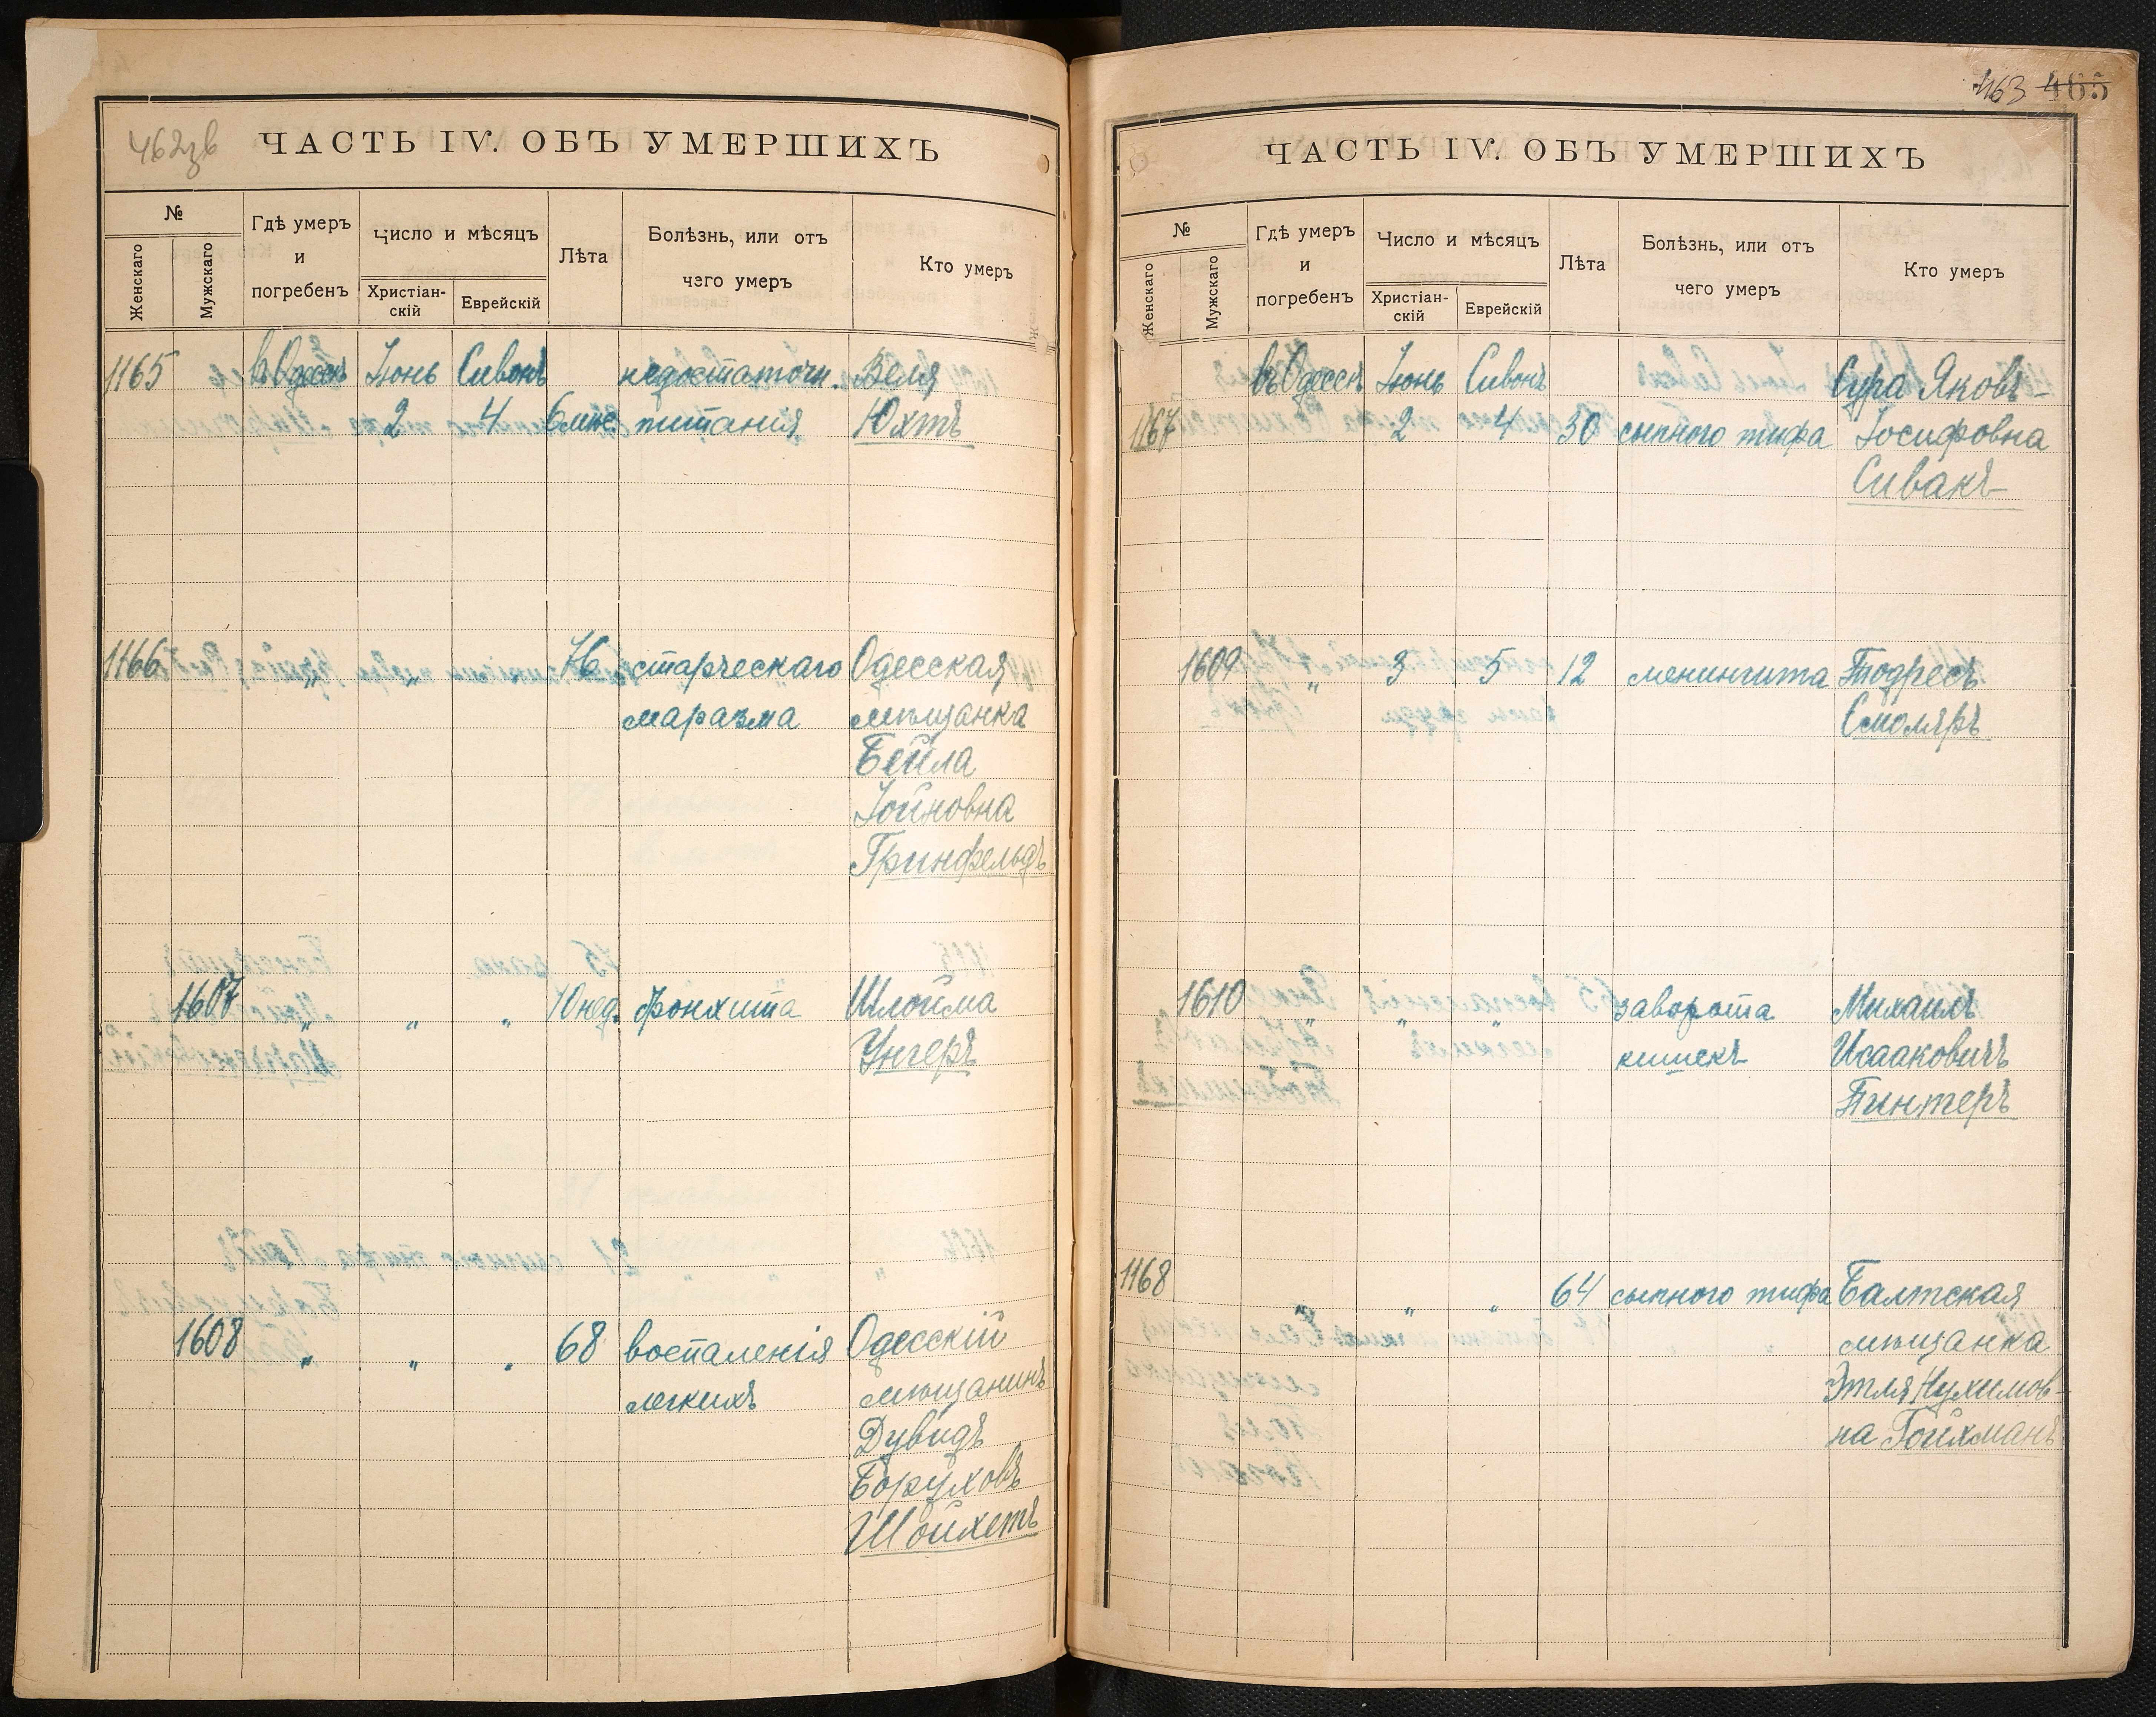 462зв
ЧАСТЬ IV. ОБЪ УМЕРШИХЪ
№
Женскаго
Мужскаго
Гдѣ умеръ
и
погребенъ
Число и мѣсяцъ
Христіан-
скій
Еврейскій
Лѣта
Болѣзнь, или отъ
чего умеръ
Кто умеръ
1165 въ Одессѣ Іюнь Сивонъ недостаточн. Веля
2 4 6 мѣс. питанія Юхтъ
1166 " " 76 старческаго Одесская
маразма мѣщанка
Бейла
Іойновна
Гринфельдъ
1607 " " " 10 нед. бронхита Шлойма
Унгеръ
1608 " " " 68 воспаленія Одесскій
легкихъ мѣщанинъ
Дувидъ
Боруховъ
Шойхетъ
463 465
ЧАСТЬ IV. ОБЪ УМЕРШИХЪ
№
Женскаго
Мужскаго
Гдѣ умеръ
и
погребенъ
Число и мѣсяцъ
Христіан-
скій
Еврейскій
Лѣта
Болѣзнь, или отъ
чего умеръ
Кто умеръ
въ Одессѣ Іюнь Сивонъ Сура Яковъ-
1167 2 4 30 сыпного тифа Іосифовна
Сивакъ
1609 " 3 5 12 менингита Тодресъ
Смоляръ
1610 " " " заворота Михаилъ
кишекъ Исааковичъ
Пинтеръ
1168 " " " 64 сыпного тифа Балтская
мѣщанка
Этля Нухимов-
на Гойхманъ